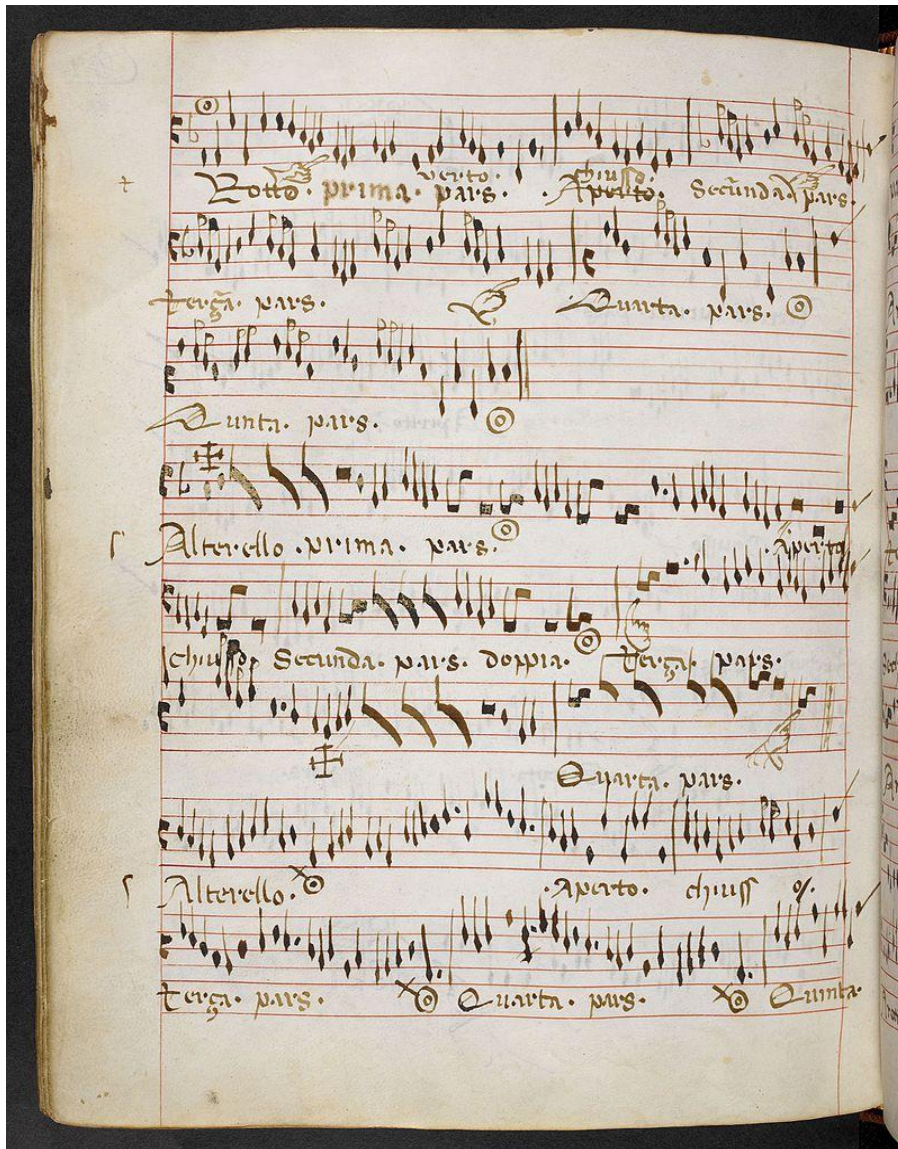 verto. chiusso.
Rotto. prima. pars. Aperto. Secunda. pars.
Terça. pars. Quarta. pars.
Quinta. pars.
Salterello. prima. pars. Aperto
chiusso Secunda. pars. doppia. Terça. pars.
Quarta. pars.
Salterello. Aperto. chiuss
Terça. pars. Quarta. pars. Quinta.